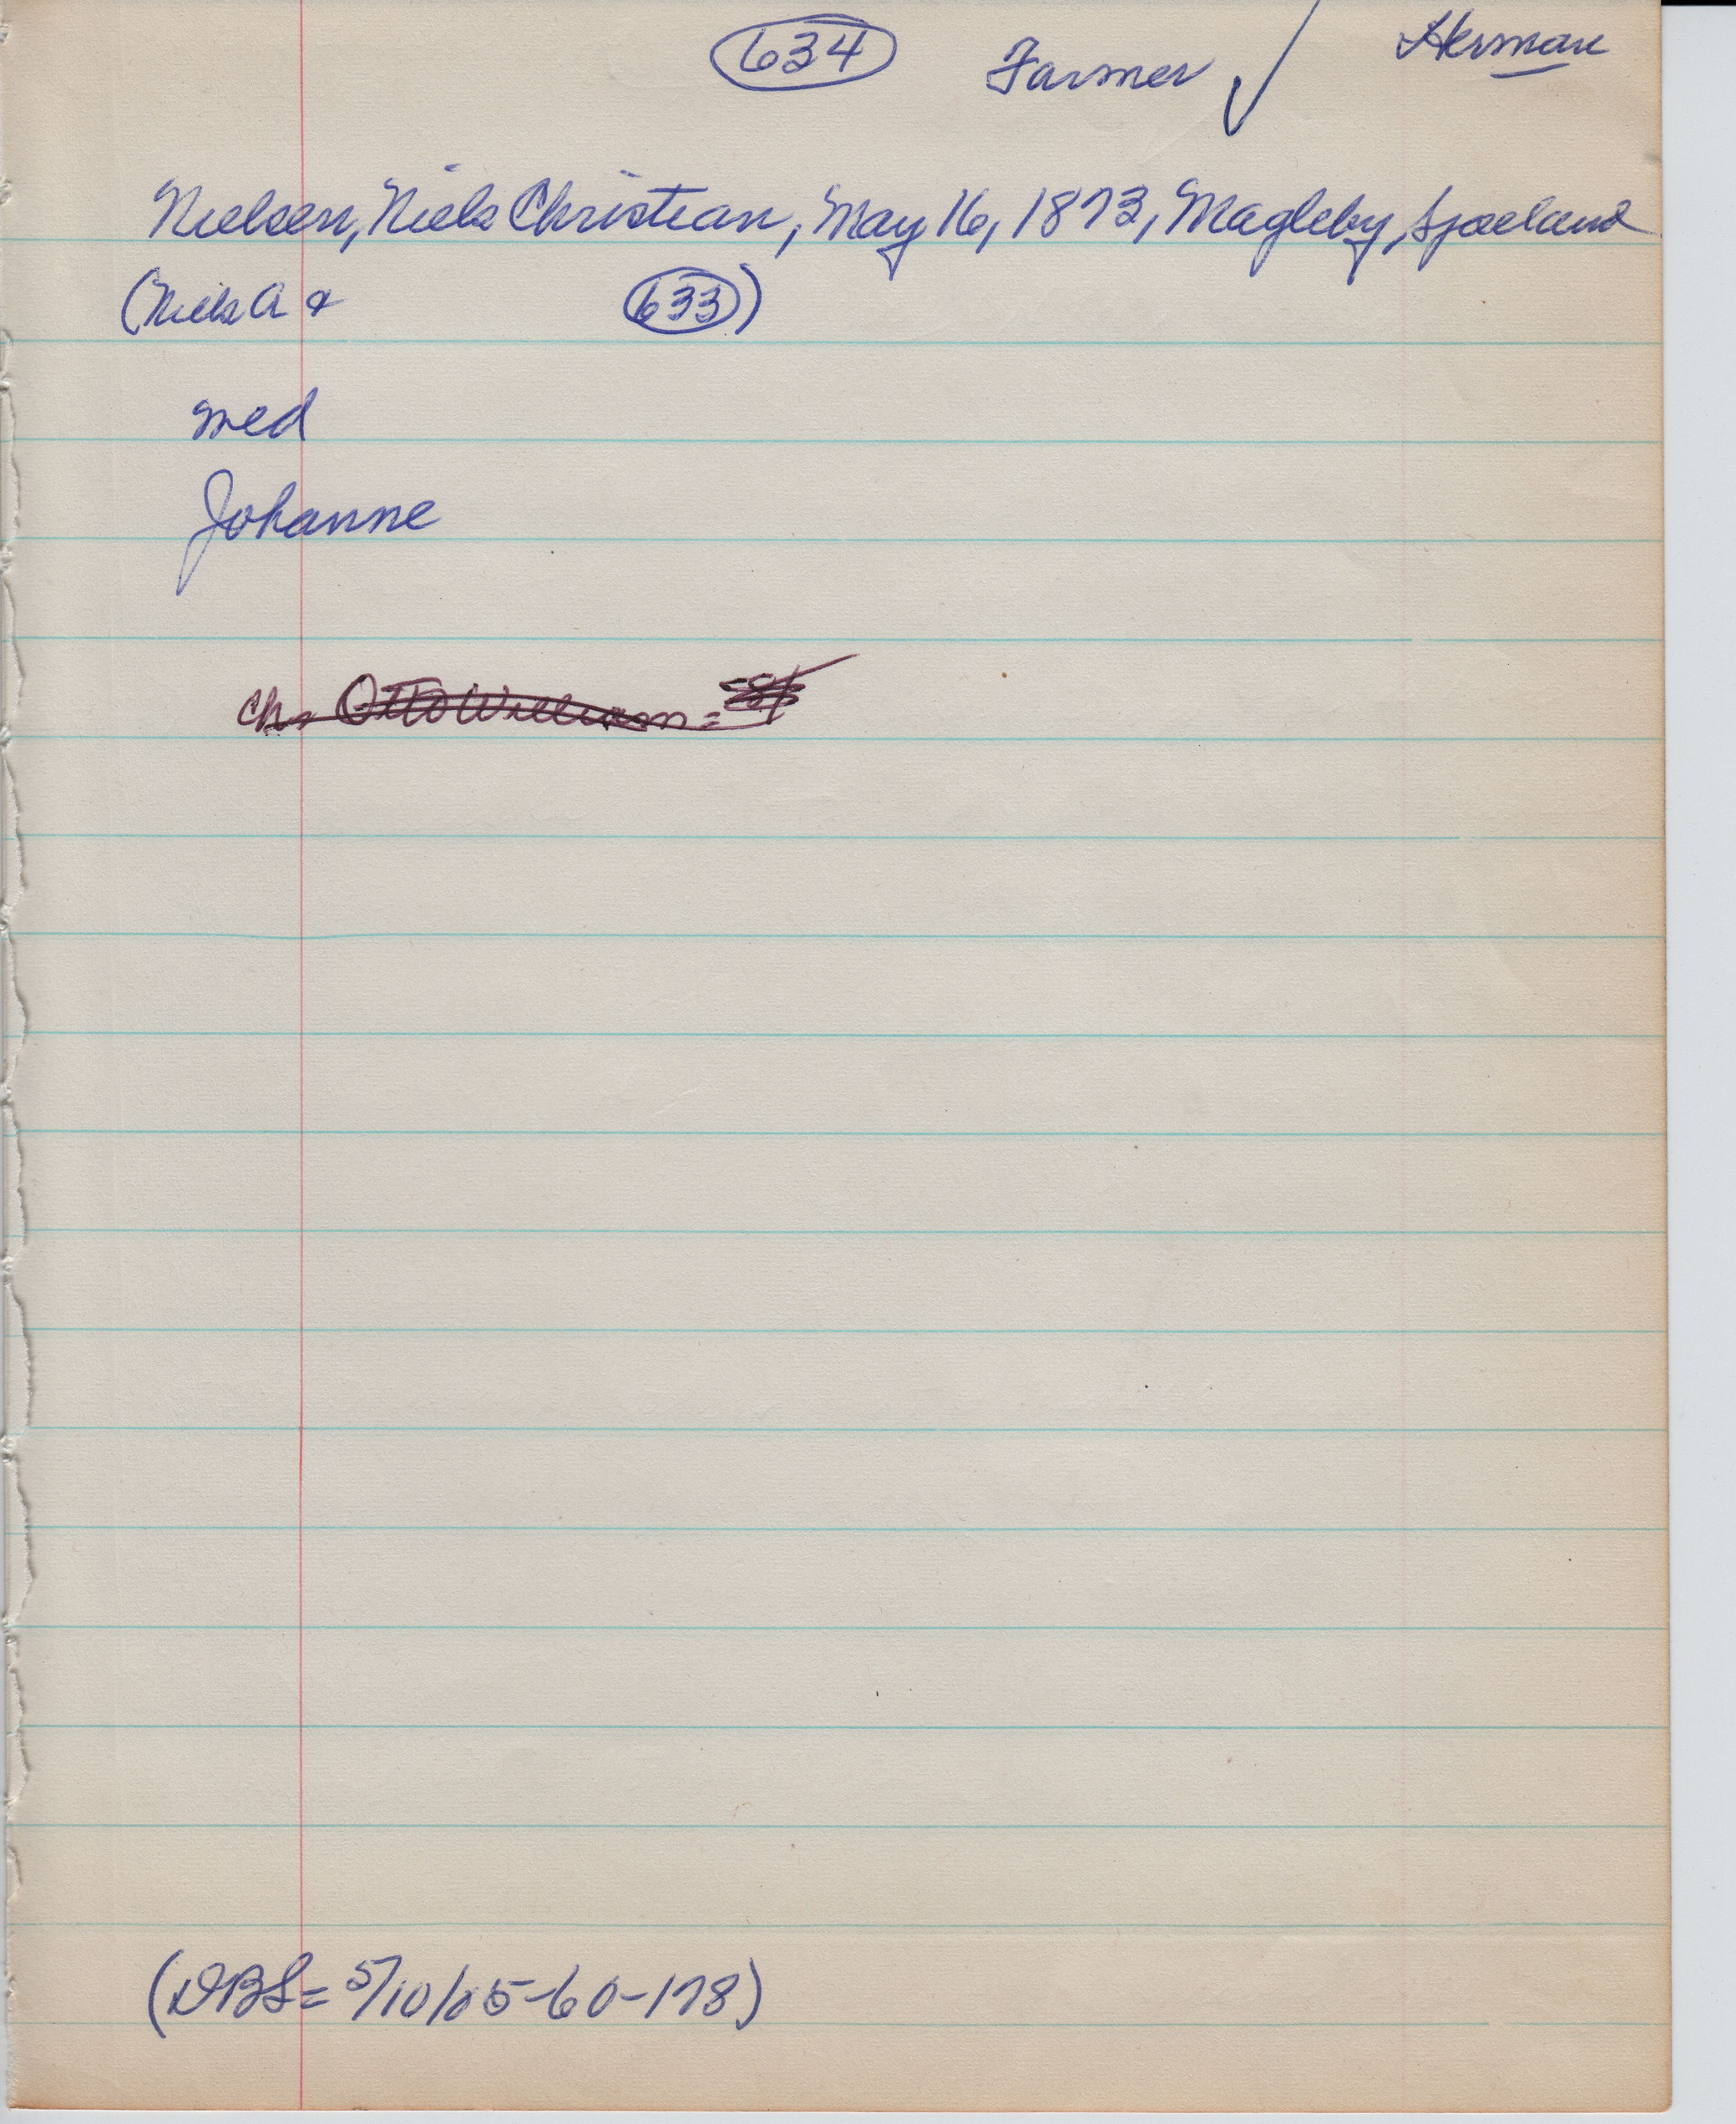 634 Farmer ✓ Herman
Nielsen, Niels Christian, May 16, 1873, Magleby, Sjaeland
(Niels A & 633)
med
Johanne
Ch. Otto William =
(DBS = 5/10/05-60-178)